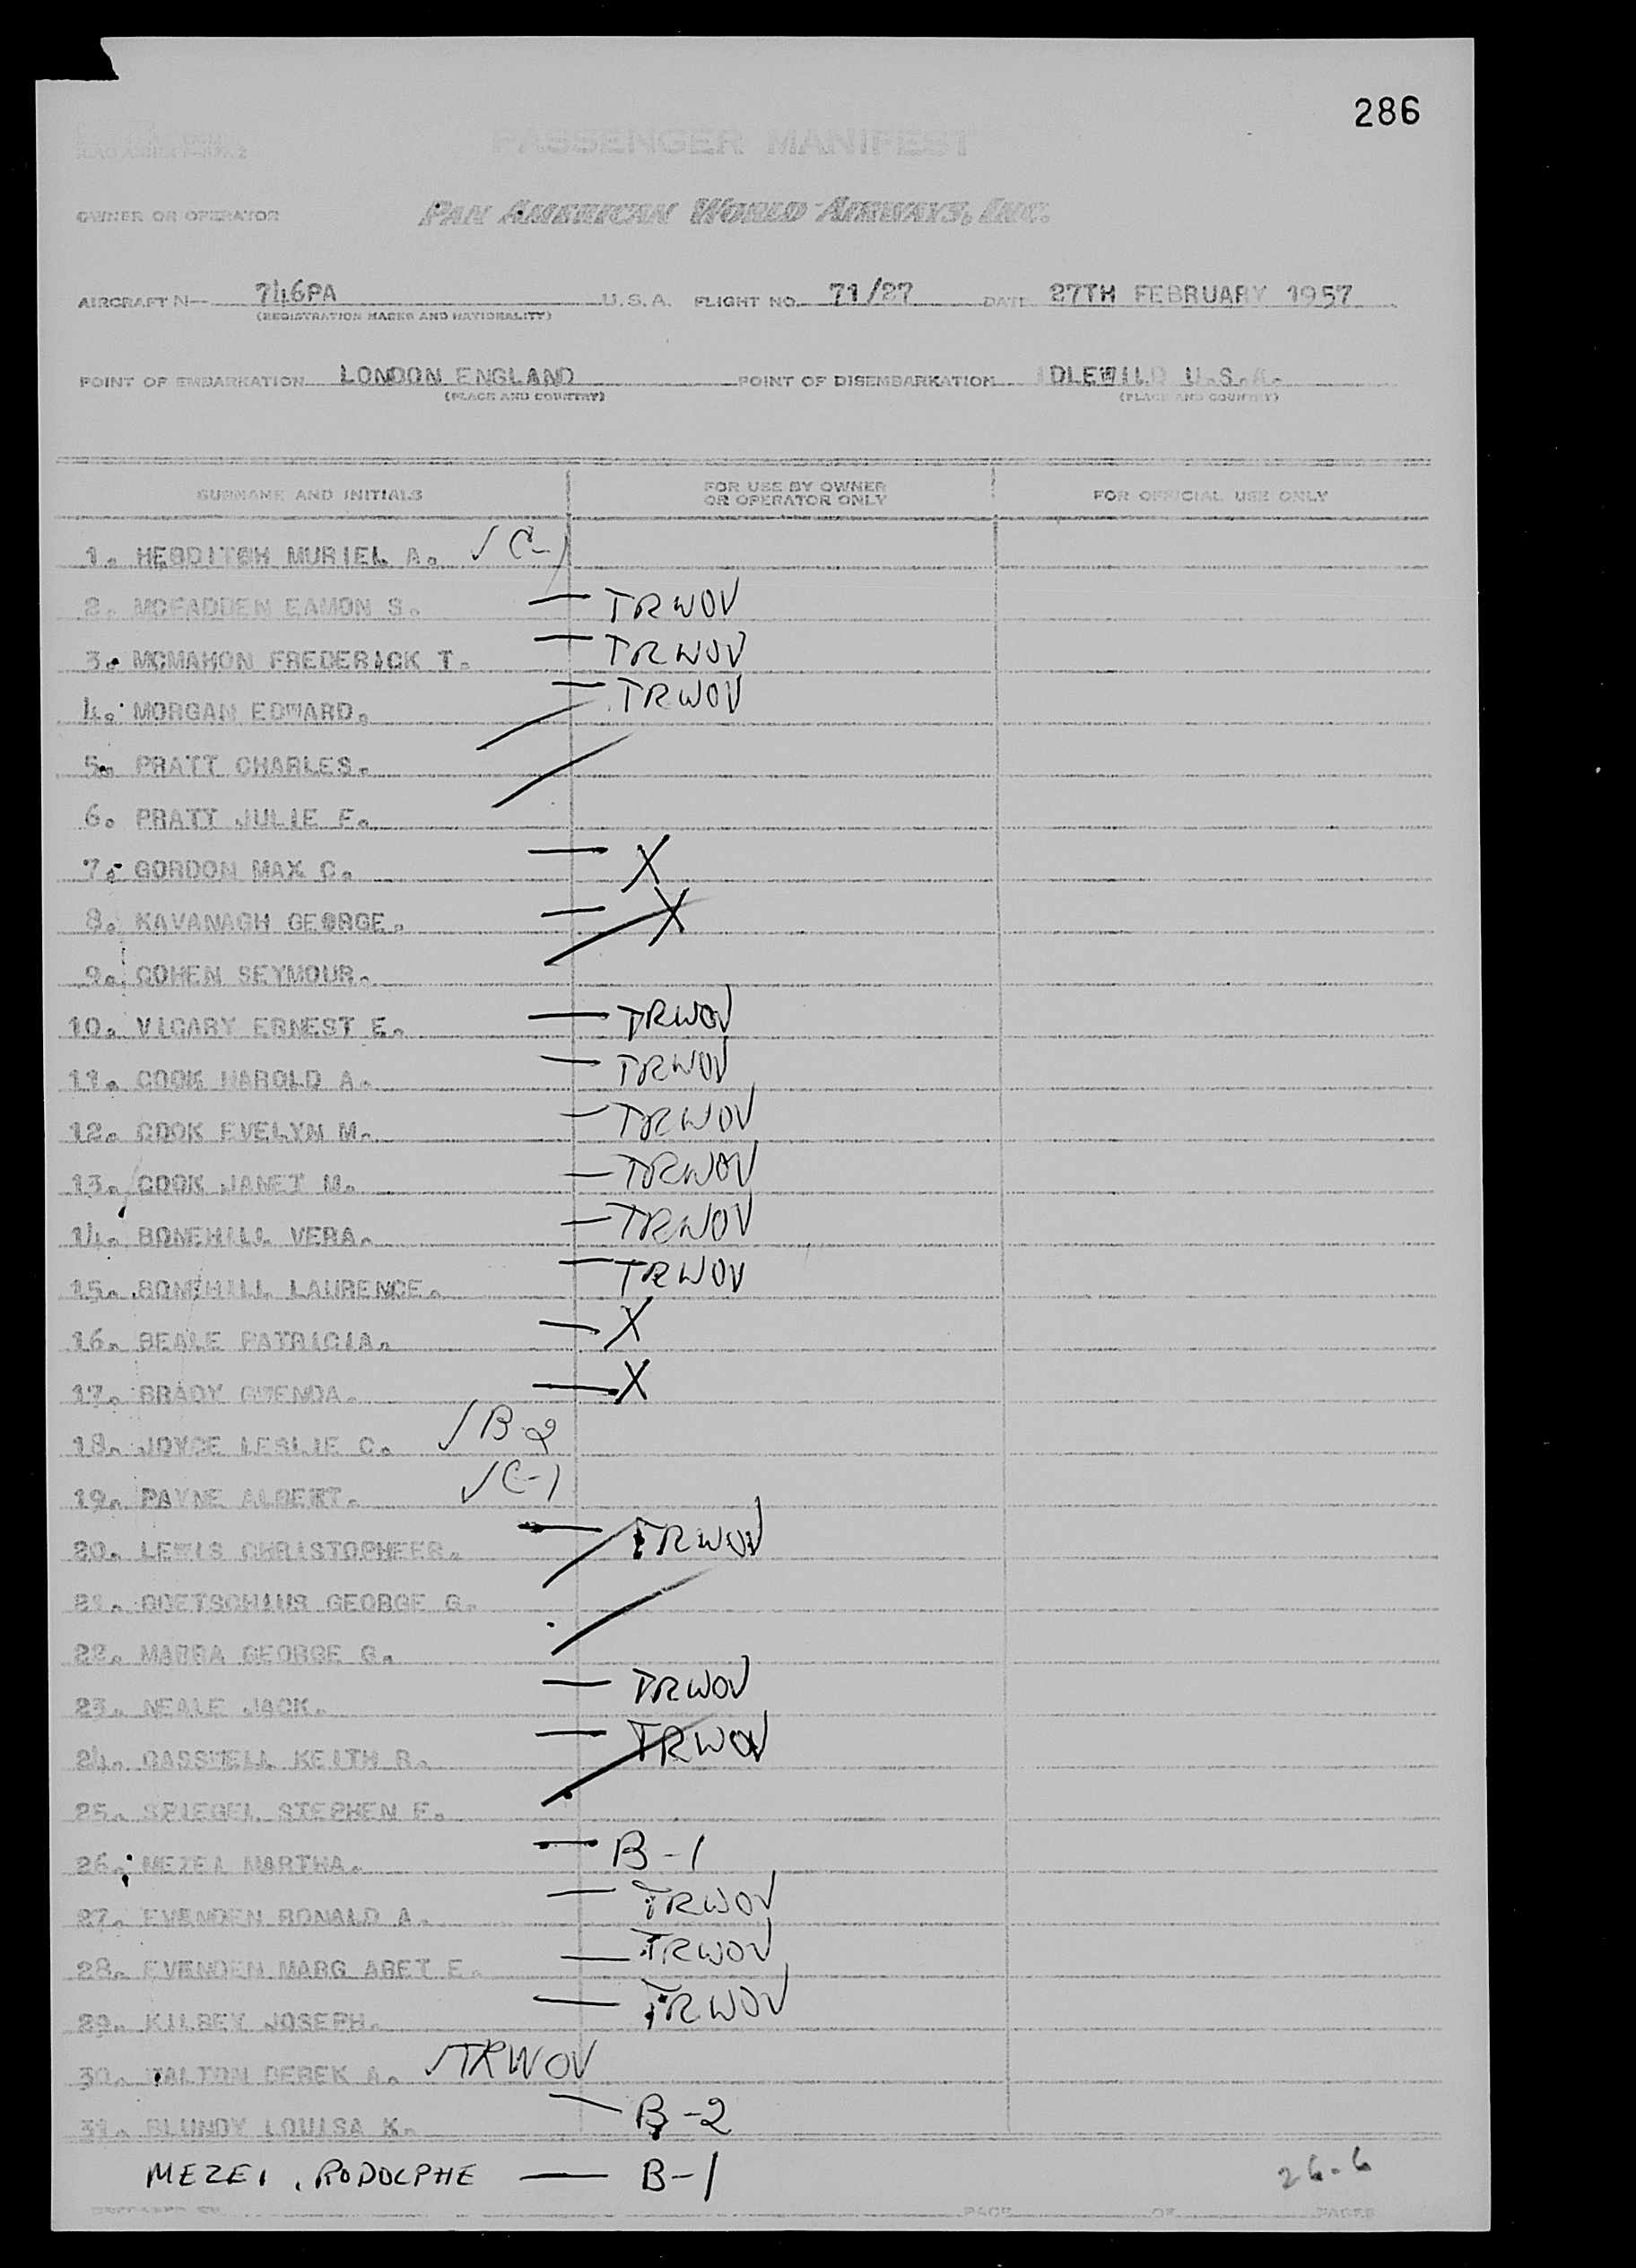 286
PASSENGER MANIFEST
OWNER OR OPERATOR PAN AMERICAN WORLD AIRWAYS, INC.
AIRCRAFT N— 746PA U.S.A. FLIGHT NO. 71/27 DATE 27TH FEBRUARY 1957
(REGISTRATION MARKS AND NATIONALITY)
POINT OF EMBARKATION LONDON ENGLAND POINT OF DISEMBARKATION IDLEWILD U.S.A.
(PLACE AND COUNTRY) (PLACE AND COUNTRY)
SURNAME AND INITIALS FOR USE BY OWNER OR OPERATOR ONLY FOR OFFICIAL USE ONLY
1. HEBDITCH MURIEL A. √ C-1
2. MCFADDEN EAMON S. — TRWOV
3. MCMAHON FREDERICK T. — TRWOV
4. MORGAN EDWARD. — TRWOV
5. PRATT CHARLES.
6. PRATT JULIE F.
7. GORDON MAX C. — X
8. KAVANAGH GEORGE. — X
9. COHEN SEYMOUR.
10. VICARY ERNEST E. — TRWOV
11. COOK HAROLD A. — TRWOV
12. COOK EVELYN M. — TRWOV
13. COOK JANET M. — TRWOV
14. BONEHILL VERA. — TRWOV
15. BONEHILL LAURENCE. — TRWOV
16. BEALE PATRICIA. — X
17. BRADY GWENDA. — X
18. JOYCE LESLIE C. √ B-2
19. PAYNE ALBERT. √ C-1
20. LEWIS CHRISTOPHEER. — TRWOV
21. GEORGE G.
22. MARRA GEORGE G.
23. NEALE JACK. — TRWOV
24. CASSWELL KEITH R. — TRWOV
25. SPIEGEL STEPHEN F.
26. MEZEI MARTHA. — B-1
27. EVENDEN RONALD A. — TRWOV
28. EVENDEN MARG ARET E. — TRWOV
29. KILBEY JOSEPH. — TRWOV
30. DEREK A. √ TRWOV
31. BLUNDY LOUISA K. — B-2
MEZEI, RODOLPHE — B-1
26-6
PREPARED BY PAGE OF PAGES